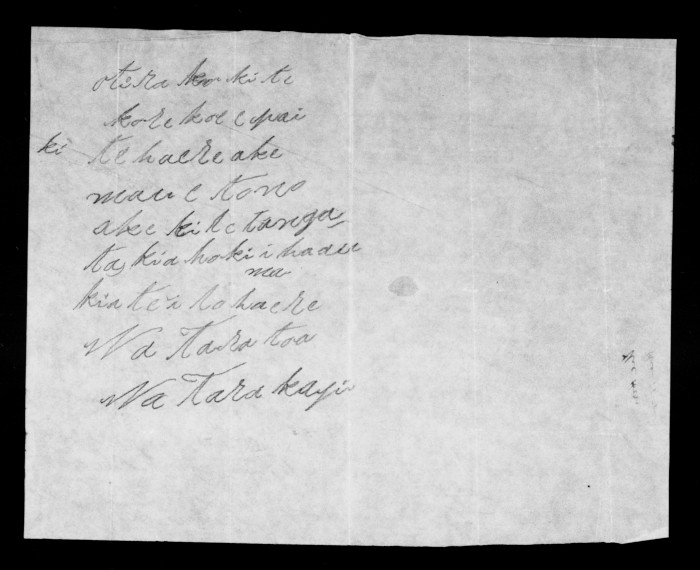 otira ko ki te
kore koe e pai
ki te haere ake
mau e tono
ake ki te tanga-
ta, kia hoki i
ma
kia te i to haere
Na Taratoa
Na Tara